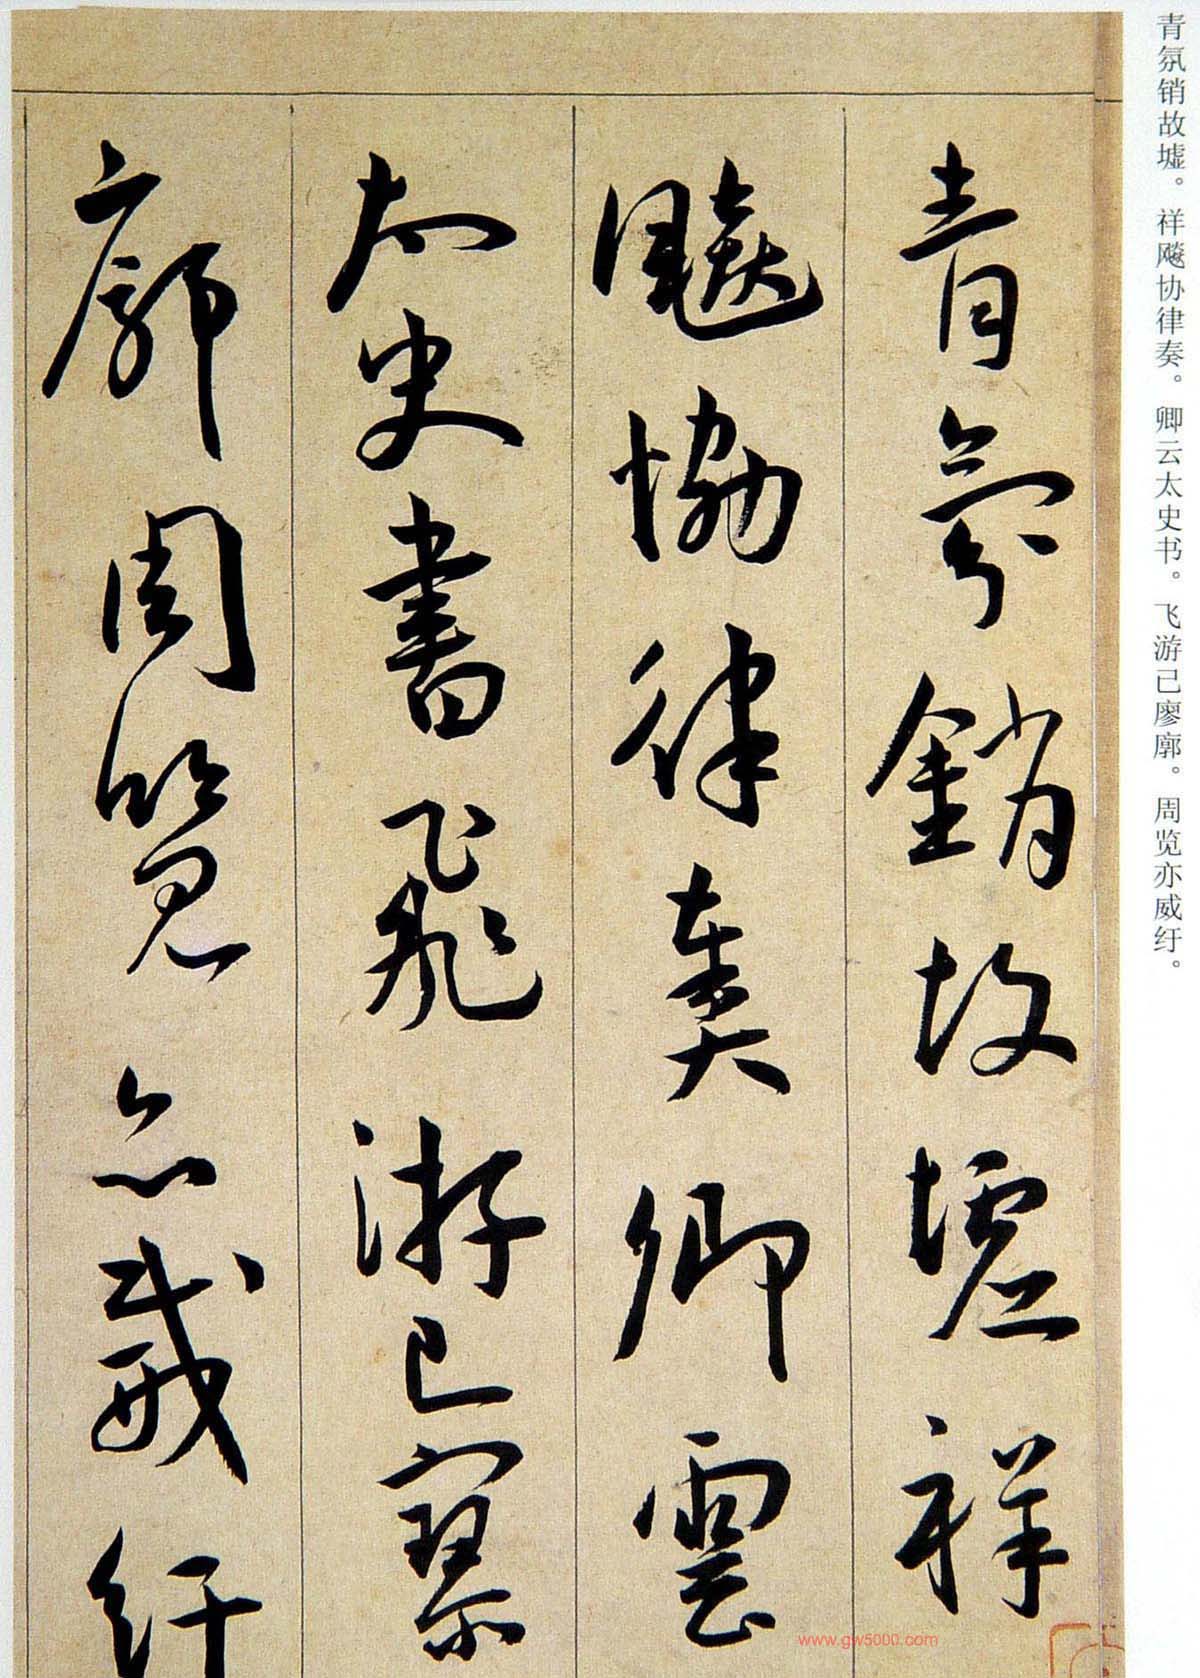 青氛销故墟。祥飚协律奏。卿云太史书。飞游己廖廓。周览亦威纡。
青氛銷故墟祥
飈恊律奏卿雲
太史書飛游已寥
廓周覽亦威紆
www.gw5000.com